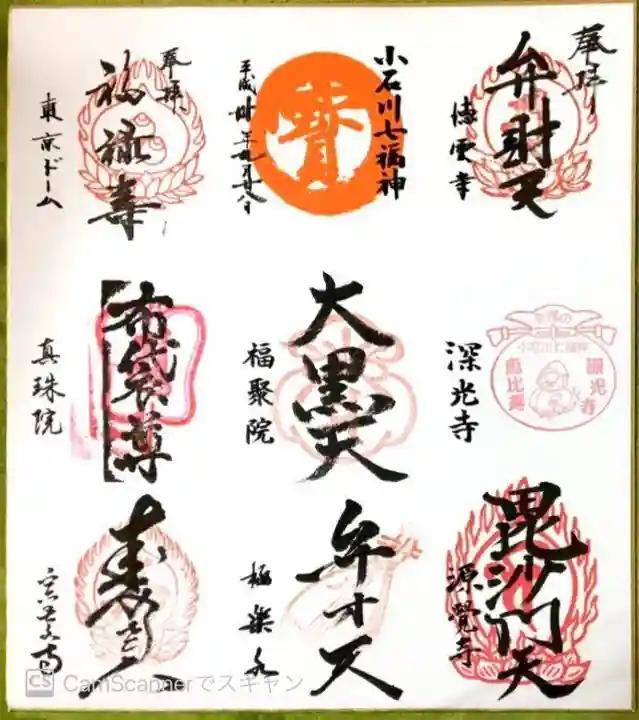 奉拝
弁財天
徳雲寺
小石川七福神
寶
平成卅一年
奉拝
福禄寿
東京ドーム
小石川七福神
深光寺
恵比寿
深光寺
大黒天
福聚院
布袋尊
真珠院
毘沙門天
源覚寺
弁才天
極楽水
寿老人
宗慶寺
CS CamScannerでスキャン